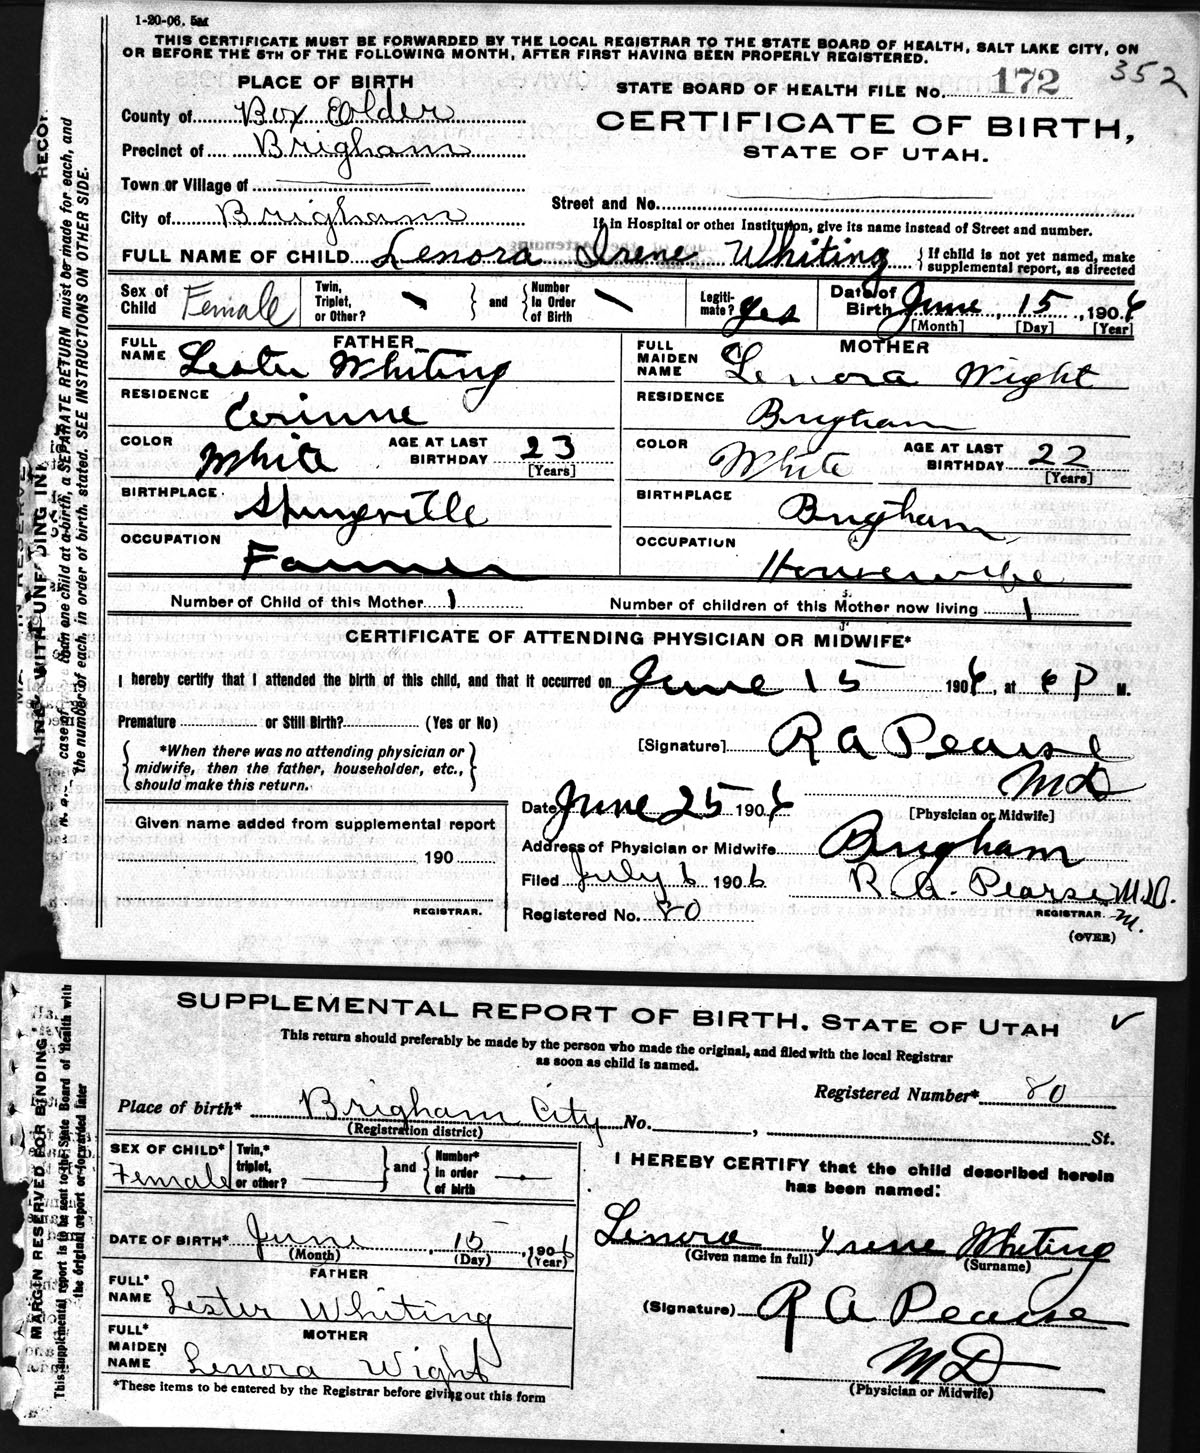 1-20-06. 5M
THIS CERTIFICATE MUST BE FORWARDED BY THE LOCAL REGISTRAR TO THE STATE BOARD OF HEALTH, SALT LAKE CITY, ON
OR BEFORE THE 5TH OF THE FOLLOWING MONTH, AFTER FIRST HAVING BEEN PROPERLY REGISTERED.
352
PLACE OF BIRTH
STATE BOARD OF HEALTH FILE No. 172
County of Box Elder
CERTIFICATE OF BIRTH,
Precinct of Brigham
STATE OF UTAH.
Town or Village of
Street and No.
City of Brigham
If in Hospital or other Institution, give its name instead of Street and number.
FULL NAME OF CHILD Lenora Irene Whiting { If child is not yet named, make supplemental report, as directed
Sex of Child Female Twin, Triplet, or Other? } and { Number In Order of Birth Legiti-mate? yes Date of Birth June 15, 1906
[Month] [Day] [Year]
FATHER
FULL NAME Lester Whiting
RESIDENCE Corinne
COLOR White AGE AT LAST BIRTHDAY 23
[Years]
BIRTHPLACE Springville
OCCUPATION Farmer
MOTHER
FULL MAIDEN NAME Lenora Wight
RESIDENCE Brigham
COLOR White AGE AT LAST BIRTHDAY 22
[Years]
BIRTHPLACE Brigham
OCCUPATION Housewife
Number of Child of this Mother 1 Number of children of this Mother now living 1
CERTIFICATE OF ATTENDING PHYSICIAN OR MIDWIFE*
I hereby certify that I attended the birth of this child, and that it occurred on June 15 1906, at 6 P M.
Premature or Still Birth? (Yes or No)
{ *When there was no attending physician or
midwife, then the father, householder, etc.,
should make this return. }
[Signature] R A Pearse
M D
[Physician or Midwife]
Date June 25 1906
Given name added from supplemental report
190
REGISTRAR.
Address of Physician or Midwife Brigham
Filed July 6 1906 R. A. Pearse M.D.
REGISTRAR. M.
Registered No. 80
(OVER)
case of more than one child at a birth, a SEPARATE RETURN must be made for each, and
the number of each, in order of birth, stated. SEE INSTRUCTIONS ON OTHER SIDE.
SUPPLEMENTAL REPORT OF BIRTH. STATE OF UTAH
This return should preferably be made by the person who made the original, and filed with the local Registrar
as soon as child is named.
Registered Number* 80
Place of birth* Brigham City No. , St.
(Registration district)
SEX OF CHILD* Female Twin,* triplet, or other? } and { Number* in order of birth
DATE OF BIRTH* June 15, 1906
(Month) (Day) (Year)
FATHER
FULL* NAME Lester Whiting
MOTHER
FULL* MAIDEN NAME Lenora Wight
*These items to be entered by the Registrar before giving out this form
I HEREBY CERTIFY that the child described herein
has been named:
Lenora Irene Whiting
(Given name in full) (Surname)
(Signature) R A Pearse
M D
(Physician or Midwife)
MARGIN RESERVED FOR BINDING
This supplemental report is to be sent to the State Board of Health with
the original report or forwarded later